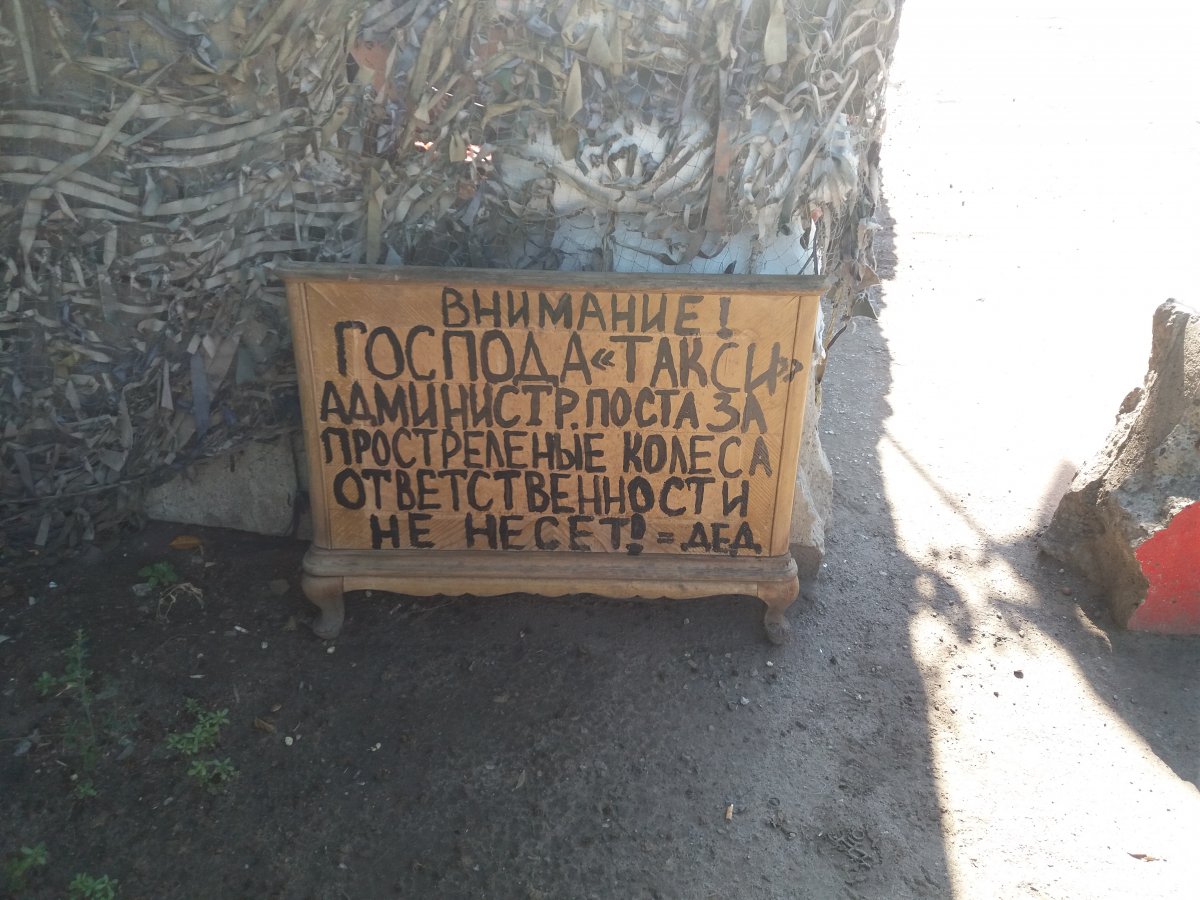 ВНИМАНИЕ!
ГОСПОДА «ТАКСИ»
АДМИНИСТР. ПОСТА ЗА
ПРОСТРЕЛЕНЫЕ КОЛЕСА
ОТВЕТСТВЕННОСТИ
НЕ НЕСЕТ! = ДЕД